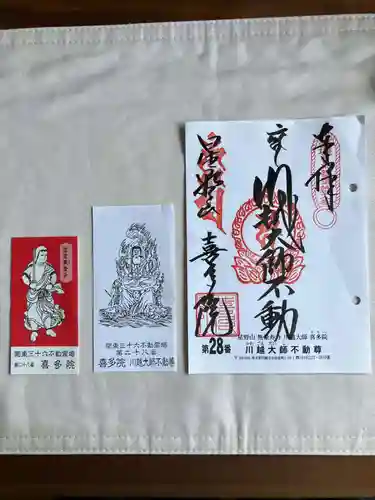 関東三十六不動霊場
第二十八番 喜多院
関東三十六不動霊場
第二十八番
喜多院 川越大師不動尊
奉拝
川越大師不動
星野山
喜多院
星野山 無量寿寺 川越大師 喜多院
第28番 川越大師不動尊